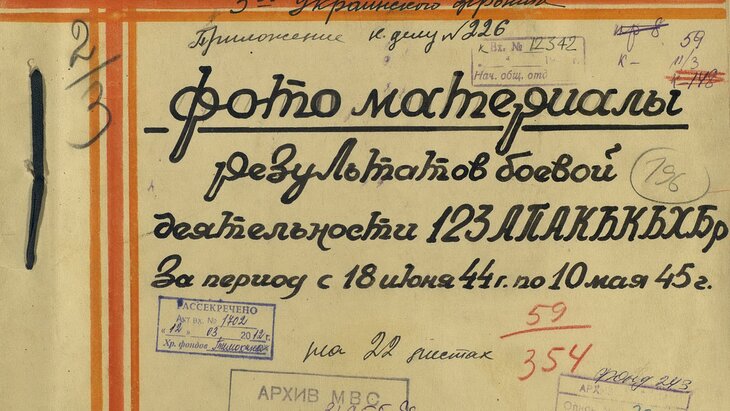 3го Украинского фронта
Приложение к делу №226
к Вх. № 12342
Нач. общ. отд
59
2/3
Фото материалы
результатов боевой
196
деятельности 123 АПАКБКЬХБр
За период с 18 июня 44г. по 10 мая 45г.
РАССЕКРЕЧЕНО
Акт вх. № 1702
«12» 03 2012 г.
Хр. фондов
59
354
на 22 листах
АРХИВ МВС
фонд 243